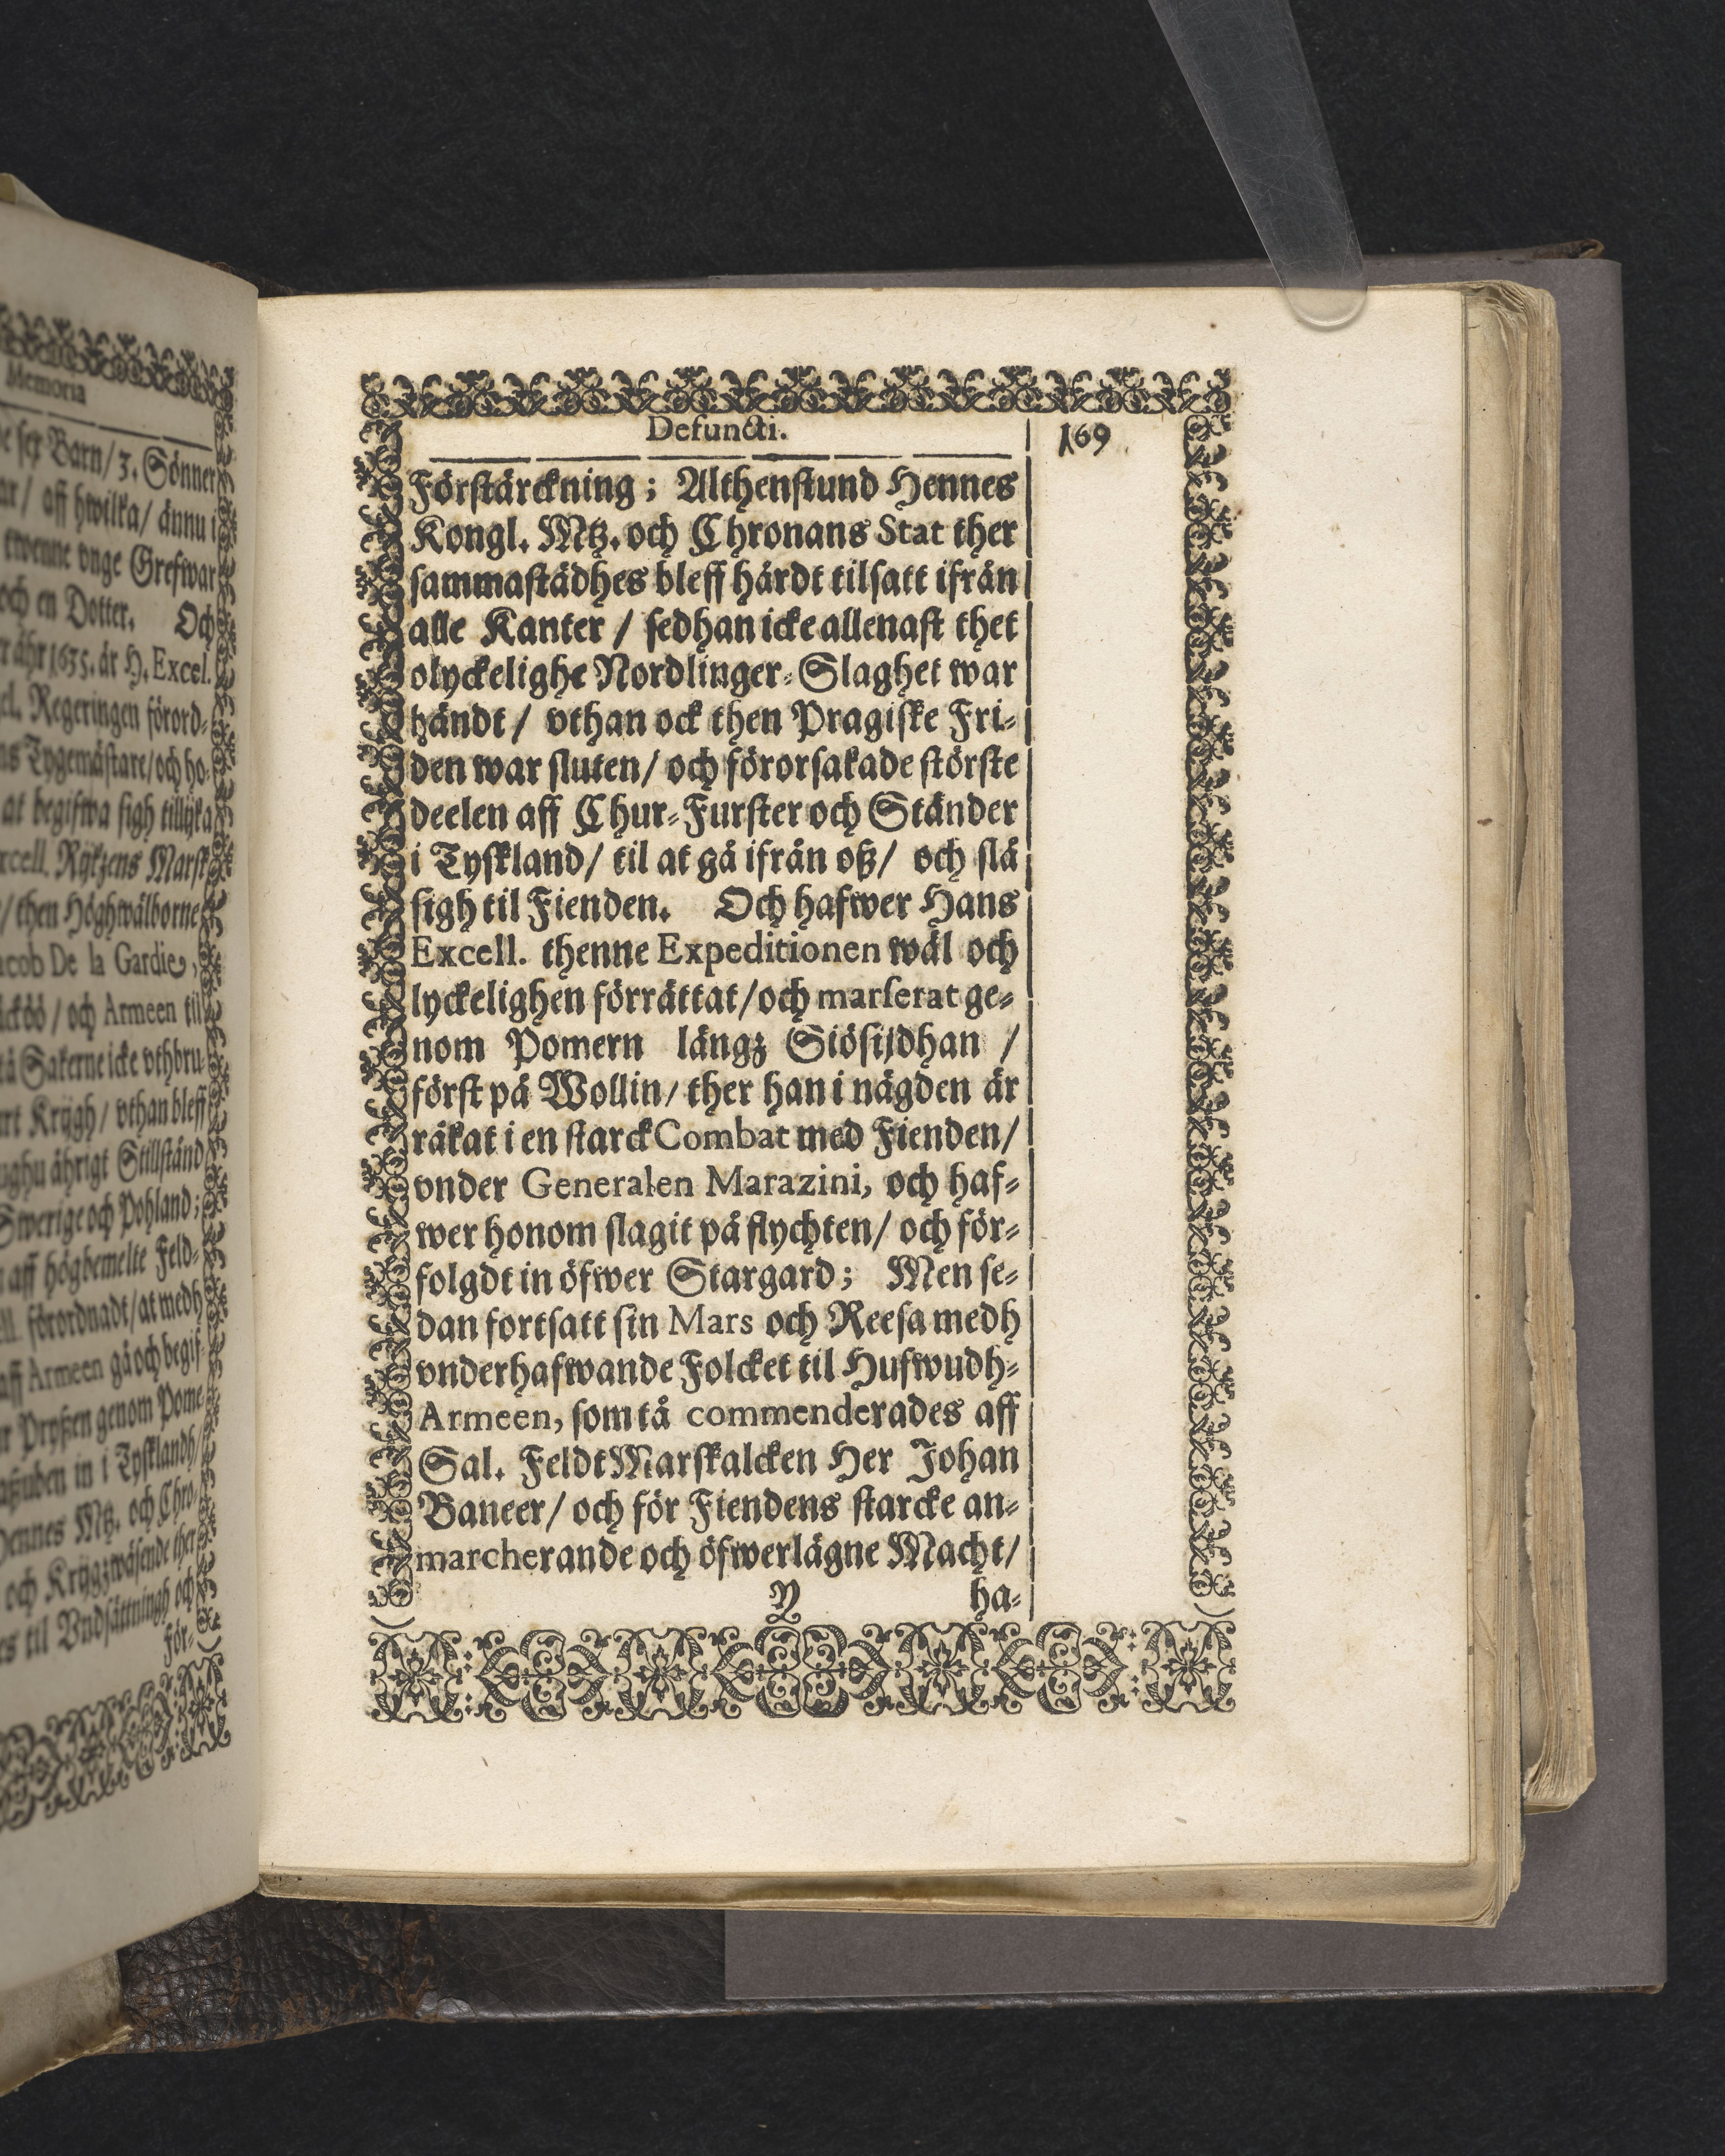 Memoria
sex Barn/ 3. Sönner
ar/ aff hwilka/ ännu i
twenne vnge Grefwar
och en Dotter. Och
åhr 1635. är H. Excel.
Regeringen förord-
Tygemästare/och ho-
at begifwa sigh tillijka
Rijkzens Marsk
/ then Höghwälborne
acob De la Gardie,
/ och Armeen til
Sakerne icke vthbru-
Krijgh/ vthan bleff
åhrigt Stillstånd
Swerige och Pohland;
aff högbemelte Feld-
förordnadt/ at medh
aff Armeen gå och begif-
Pryßen genom Pome-
in i Tysklandh/
Hennes Mtz. och Chro-
och Krijgzwäsende ther
til Vndsättningh och
För-
Defuncti. 169
Förstärckning; Althenstund Hennes
Kongl. Mtz. och Chronans Stat ther
sammastädhes bleff hårdt tilsatt ifrån
alle Kanter / sedhan icke allenast thet
olyckelighe Nordlinger-Slaghet war
händt / vthan ock then Pragiske Fri-
den war sluten/ och förorsakade störste
deelen aff Chur-Furster och Ständer
i Tyskland/ til at gå ifrån oß/ och slå
sigh til Fienden. Och hafwer Hans
Excell. thenne Expeditionen wäl och
lyckelighen förrättat/och marserat ge-
nom Pomern långz Siösijdhan /
först på Wollin/ ther han i nägden är
råkat i en starck Combat med Fienden/
vnder Generalen Marazini, och haf-
wer honom slagit på flychten/ och för-
folgdt in öfwer Stargard; Men se-
dan fortsatt sin Mars och Reesa medh
vnderhafwande Folcket til Hufwudh-
Armeen, som tå commenderades aff
Sal. Feldt Marskalcken Her Johan
Baneer/ och för Fiendens starcke an-
marcherande och öfwerlägne Macht/
Y ha-